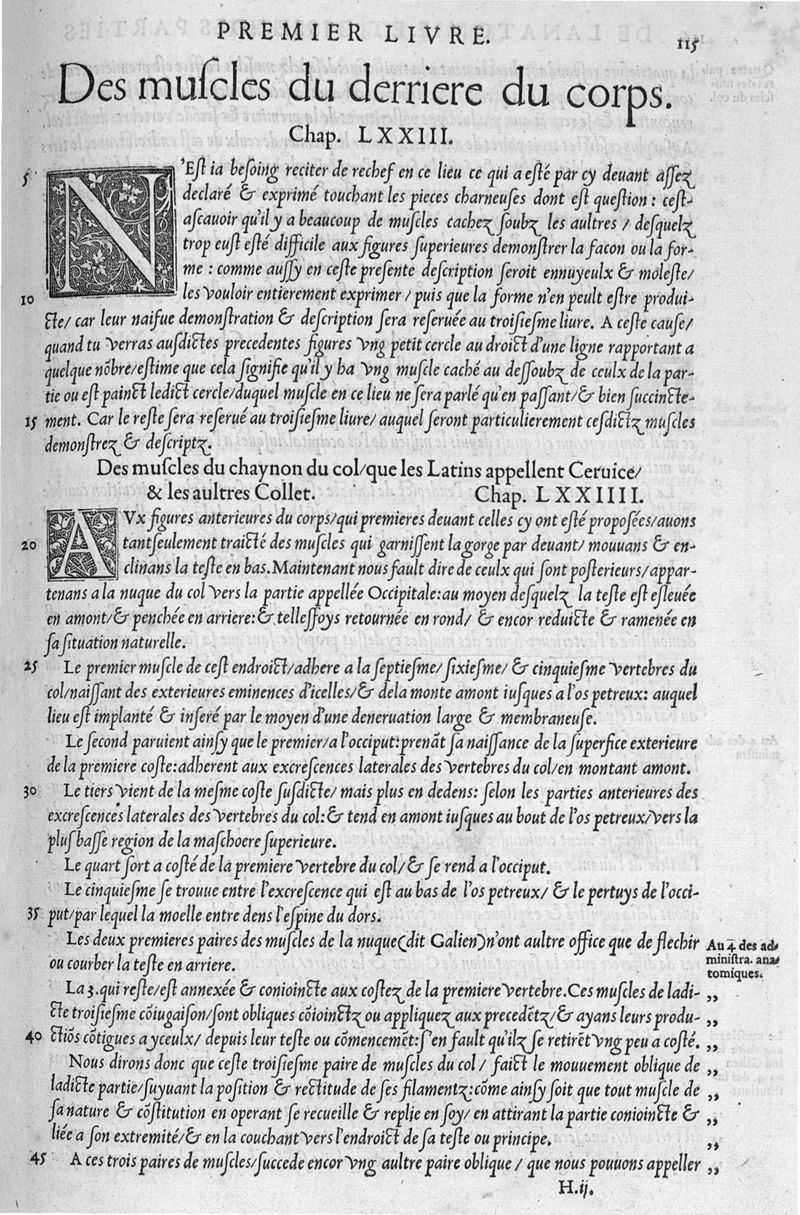 PREMIER LIVRE.
115
Des muſcles du derriere du corps.
Chap. LXXIII.
5 N'Eſt ia beſoing reciter de rechef en ce lieu ce qui a eſté par cy deuant aſſez
declaré & exprimé touchant les pieces charneuſes dont eſt queſtion : ceſt-
aſcauoir qu'il y a beaucoup de muſcles cachez ſoubz les aultres / deſquelz
trop euſt eſté difficile aux figures ſuperieures demonſtrer la facon ou la for-
me : comme auſſy en ceſte preſente deſcription ſeroit ennuyeulx & moleſte/
10 les vouloir entierement exprimer / puis que la forme n'en peult eſtre produi-
cte/ car leur naifue demonſtration & deſcription ſera reſeruée au troiſieſme liure. A ceſte cauſe/
quand tu verras auſdictes precedentes figures vng petit cercle au droict d'une ligne rapportant a
quelque nõbre/eſtime que cela ſignifie qu'il y ha vng muſcle caché au deſſoubz de ceulx de la par-
tie ou eſt painct ledict cercle/duquel muſcle en ce lieu ne ſera parlé qu'en paſſant/& bien ſuccincte-
15 ment. Car le reſte ſera reſerué au troiſieſme liure/ auquel ſeront particulierement ceſdictz muſcles
demonſtrez & deſcriptz.
Des muſcles du chaynon du col/que les Latins appellent Ceruice/
& les aultres Collet. Chap. LXXIIII.
AVx figures anterieures du corps/qui premieres deuant celles cy ont eſté propoſées/auons
20 tantſeulement traicté des muſcles qui garniſſent la gorge par deuant/ mouuans & en-
clinans la teſte en bas.Maintenant nous fault dire de ceulx qui ſont poſterieurs/appar-
tenans a la nuque du col vers la partie appellée Occipitale:au moyen deſquelz la teſte eſt eſleuée
en amont/& penchée en arriere:& telleſſoys retournée en rond/ & encor reduicte & ramenée en
ſa ſituation naturelle.
25 Le premier muſcle de ceſt endroict/adhere a la ſeptieſme/ ſixieſme/ & cinquieſme vertebres du
col/naiſſant des exterieures eminences d'icelles/& dela monte amont iuſques a l'os petreux: auquel
lieu eſt implanté & inſeré par le moyen d'une deneruation large & membraneuſe.
Le ſecond paruient ainſy que le premier/a l'occiput:prenãt ſa naiſſance de la ſuperfice exterieure
de la premiere coſte:adherent aux excreſcences laterales des vertebres du col/en montant amont.
30 Le tiers vient de la meſme coſte ſuſdicte/ mais plus en dedens: ſelon les parties anterieures des
excreſcences laterales des vertebres du col:& tend en amont iuſques au bout de l'os petreux/vers la
plus baſſe region de la maſchoere ſuperieure.
Le quart ſort a coſté de la premiere vertebre du col/& ſe rend a l'occiput.
Le cinquieſme ſe trouue entre l'excreſcence qui eſt au bas de l'os petreux/ & le pertuys de l'occi-
35 put/par lequel la moelle entre dens l'eſpine du dors.
Les deux premieres paires des muſcles de la nuque(dit Galien)n'ont aultre office que de flechir
ou courber la teſte en arriere.
Au 4. des ad-
miniſtra. ana
tomiques.
La 3. qui reſte/eſt annexée & conioincte aux coſtez de la premiere vertebre.Ces muſcles de ladi- ,,
cte troiſieſme cõiugaiſon/ſont obliques cõioinctz ou appliquez aux precedẽtz/& ayans leurs produ- ,,
40 ctiõs cõtigues a yceulx/ depuis leur teſte ou cõmencemẽt:ſ'en fault qu'ilz ſe retirẽt vng peu a coſté. ,,
Nous dirons donc que ceſte troiſieſme paire de muſcles du col / faict le mouuement oblique de ,,
ladicte partie/ſuyuant la poſition & rectitude de ſes filamentz:cõme ainſy ſoit que tout muſcle de ,,
ſa nature & cõſtitution en operant ſe recueille & replie en ſoy/ en attirant la partie conioincte & ,,
liée a ſon extremité/& en la couchant vers l'endroict de ſa teſte ou principe. ,,
45 A ces trois paires de muſcles/ſuccede encor vng aultre paire oblique / que nous pouuons appeller ,,
H.ij.